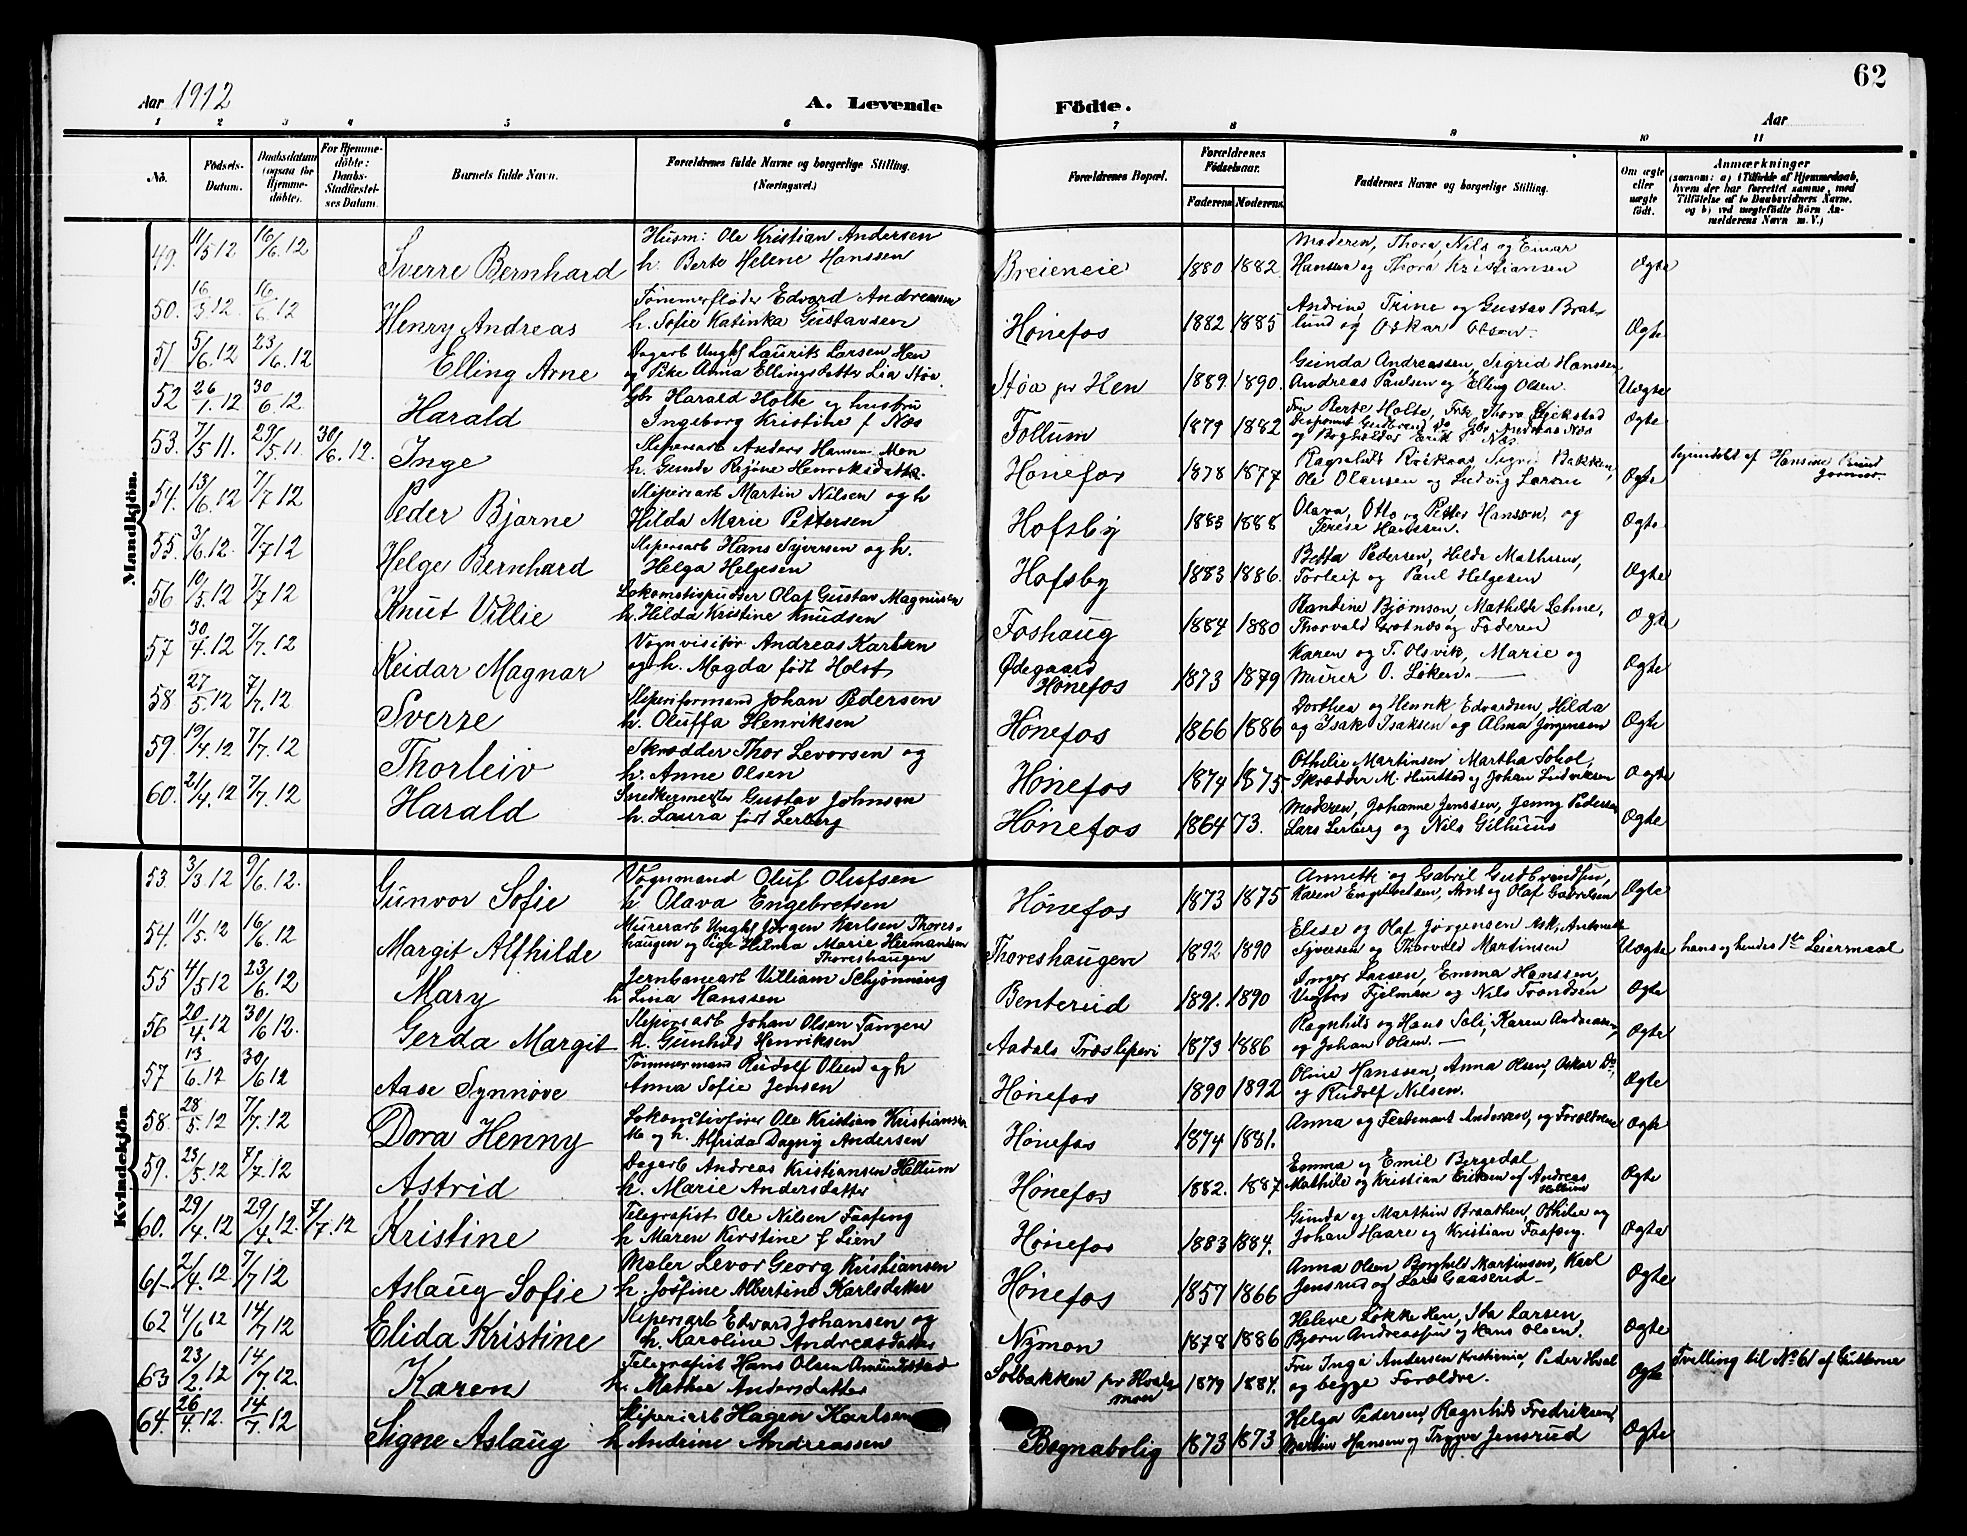 62
Aar 1912
A. Levende Födte.
Aar
1 2 3 4 5 6 7 8 9 10 11
No.
Födsels-Datum.
Daabsdatum (ogsaa for Hjemme-döbte).
For Hjemme-döbte: Daabs-Stadfæstel-ses Datum.
Barnets fulde Navn.
Forældrenes fulde Navne og borgerlige Stilling. (Næringsvei.)
Forældrenes Bopæl.
Forældrenes Födselsaar.
Faderens Moderens.
Faddernes Navne og borgerlige Stilling.
Om ægte eller uægte født.
Anmærkninger
(saasom: a) i Tilfælde af Hjemmedaab, hvem der har forrettet samme, med Tilföielse af to Daabsvidners Navne, og b) ved uægtefödte Börn An-melderens Navn m. V.)
Mandkjön.
49. 11/5 12 16/6 12 Sverre Bernhard Husm: Ole Kristian Andersen h. Berte Helene Hanssen Breieneie 1880 1882 Moderen, Thora, Nils og Einar Hansen og Thora Kristiansen Ægte
50. 16/3 12. 16/6 12 Henry Andreas Tømmerfløder Edvard Andreassen h. Sofie Katinka Gustavsen Hønefos 1882 1885 Andrine, Trine og Gustav Brat-lund og Oskar Olsen. Ægte
51 5/6. 12 23/6. 12 Elling Arne Dagarb Ungkf Laurits Larsen Hen og Pike Anna Ellingsdatter Lia Støa. Støa pr Hen 1889. 1890. Gunda Andreassen, Sigrid Hanssen Andreas Paulsen og Elling Olsen. Uægte
52 26/1. 12 30/6. 12 Harald Gbr Harald Holte og hustru Ingeborg Kristine f Næs Follum 1879 1882 Fru Berte Holte, Frk Thora Gjekstad Ægte
53. 7/5 11. 29/5 11 30/6. 12. Inge Sliperiarb Anders Hansen Moen h. Gunda Regine Henriksdatter Hønefos 1878 1877 Ragnhild Sigri Bakken, Ole Olausen og Ludvig Larsen Ægte hjemdøbt af Hansine
54. 13/6. 12 7/7 12 Peder Bjarne Sliperiarb Martin Nilsen og h Hilda Marie Pettersen Hofsby 1883 1888 Olava, Otto og Peder Hansen, og Terese Hansen. Ægte
55. 3/6. 12. 7/7 12 Helge Bernhard Sliperiarb Hans Syversen og h. Helga Helgesen Hofsby 1883 1886. Betta Pedersen, Hilda Mathisen, Torleif og Paul Helgesen Ægte
56 10/5. 12 7/7 12 Knut Villie Lokomotivpudser Olaf Gustav Magnusen h. Hilda Kristine Knudsen Foshaug 1884 1880 Randine Bjørnson, Mathilde Lehne, Thorvald Grøtnæs og Faderen Ægte
57 30/4. 12 7/7. 12 Reidar Magnar Vognvisitør Andreas Karlsen og h. Magda født Holst Ødegaard Hønefos 1873 1879 Karen og T. Olsvik, Marie og Murer O. Løken. Ægte
58 27/5. 12 7/7. 12 Sverre Sliperiformand Johan Pedersen h. Oluffa Henriksen Hønefos 1866 1886 Dorthea og Henrik Edvardsen, Hilda og Isak Isaksen og Alma Jørgensen Ægte
59. 19/4. 12 7/7. 12 Thorleiv Skrædder Thor Levorsen og h. Anne Olsen Hønefos 1874 1875 Othilie Martinsen Martha Sohol, Skrædder M. Hunstad og Johan Ludviksen Ægte
60. 21/4. 12 7/7. 12 Harald Snedkermester Gustav Johnsen h. Laura født Lerberg Hønefos 1864 73. Moderen, Johanne Jenssen, Jenny Pedersen Lars Lerberg og Nils Gilhuus Ægte
Kvindekjön
53. 3/3. 12 9/6. 12. Gunvor Sofie Vognmand Oluf Olufsen h. Olava Engebretsen Hønefos 1873 1875 Anneth og Gabril Gulbrandsen, Karen Engebretsen, Ant og Olaf Gabrielsen Ægte
54. 11/5. 12 16/6. 12 Margit Alfhilde Murerarb Ungkf Jørgen Karlsen Thores-haugen og Pige Hilma Marie Hermansen Thoreshaugen Thoreshaugen 1892 1890 Elise og Olaf Jørgensen Ask, Antonette Syversen og Thorvald Martinsen Uægte hans og hendes 1ste Leiermaal
55 4/5 12 23/6. 12 Mary Jernbanearb Villiam Schjønning h Lina Hanssen Benterud 1891. 1890 Inger Larsen, Emma Hanssen, Viktor Fjelman og Nils Trondsen Ægte
56 20/4. 12 30/6 12. Gerda Margit Sliperiarb Johan Olsen Tangen h. Gunhild Henriksen Aadals Træsliperi 1873 1886 Ragnhild og Hans Soli, Karen Andreassen og Johan Olsen. Ægte
57 13/6. 12 30/6 12 Aase Synnøve Tømmermand Rudolf Olsen og h Anna Sofie Jensen Hønefos 1890 1892 Oline Hanssen, Anna Olsen, Oskar Do, og Rudolf Nilsen. Ægte
58. 28/5. 12 7/7. 12 Dora Henny Lokomotivfører Ole Kristian Kristiansen Mo og h. Alfrida Dagny Andersen Hønefos 1874 1881. Anna og Ferdinant Andersen, og Forældrene Ægte
59. 25/5. 12 7/7. 12 Astrid Dagarb Andreas Kristiansen Hellum h. Marie Andersdatter Hønefos 1882. 1887 Emma og Emil Bergedal Mathile og Kristian Eriksen af Andreas Hellum Ægte
60. 29/4. 12 29/4. 12. 7/7. 12 Kristine Telegrafist Ole Nilsen Faafeng h Maren Kirstine f Lien Hønefos 1883 1884. Gunda og Marthin Braathen, Othilia og Johan Haare og Kristian Faafeng. Ægte
61- 2/4. 12 7/7 12 Aslaug Sofie Maler Levor Georg Kristiansen h. Josfine Albertine Karlsdatter Hønefos 1857 1866 Anna Olsen Borghild Martinsen, Karl Jensrud og Lars Gaaserud Ægte
62 4/6 12 14/7 12 Elida Kristine Sliperiarb Edvard Johansen og h. Karoline Andreasdatter Nymon 1878 1886 Helene Løkke Hen, Ida Larsen, Bjørn Andreassen og Hans Olsen. Ægte
63 23/2. 12 14/7. 12. Karen Telegrafist Hans Olsen Amundstad h. Mathea Andersdatter Solbakken pr Hvals moen 1879 1884. Fru Inga Andersen Kristiania, Peder Hval og begge Forældre. Ægte Tvilling til No 61 af Gutterne
64. 26/4. 12. 14/7. 12 Signe Aslaug Sliperiarb Hagen Karlsen h Andrine Andreassen Bognabolig 1873 1873 Helga Pedersen, Ragnhild Fredriksen, Martin Hansen og Trygve Jensrud Ægte